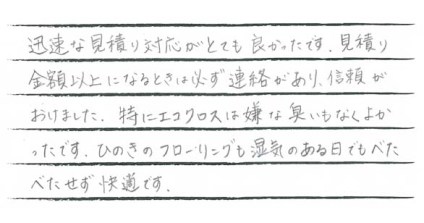 迅速な見積り対応がとても良かったです。見積り
金額以上になるときは必ず連絡があり、信頼が
おけました。特にエコクロスは嫌な臭いもなくよか
ったです。ひのきのフローリングも湿気のある日でもべた
べたせず快適です。